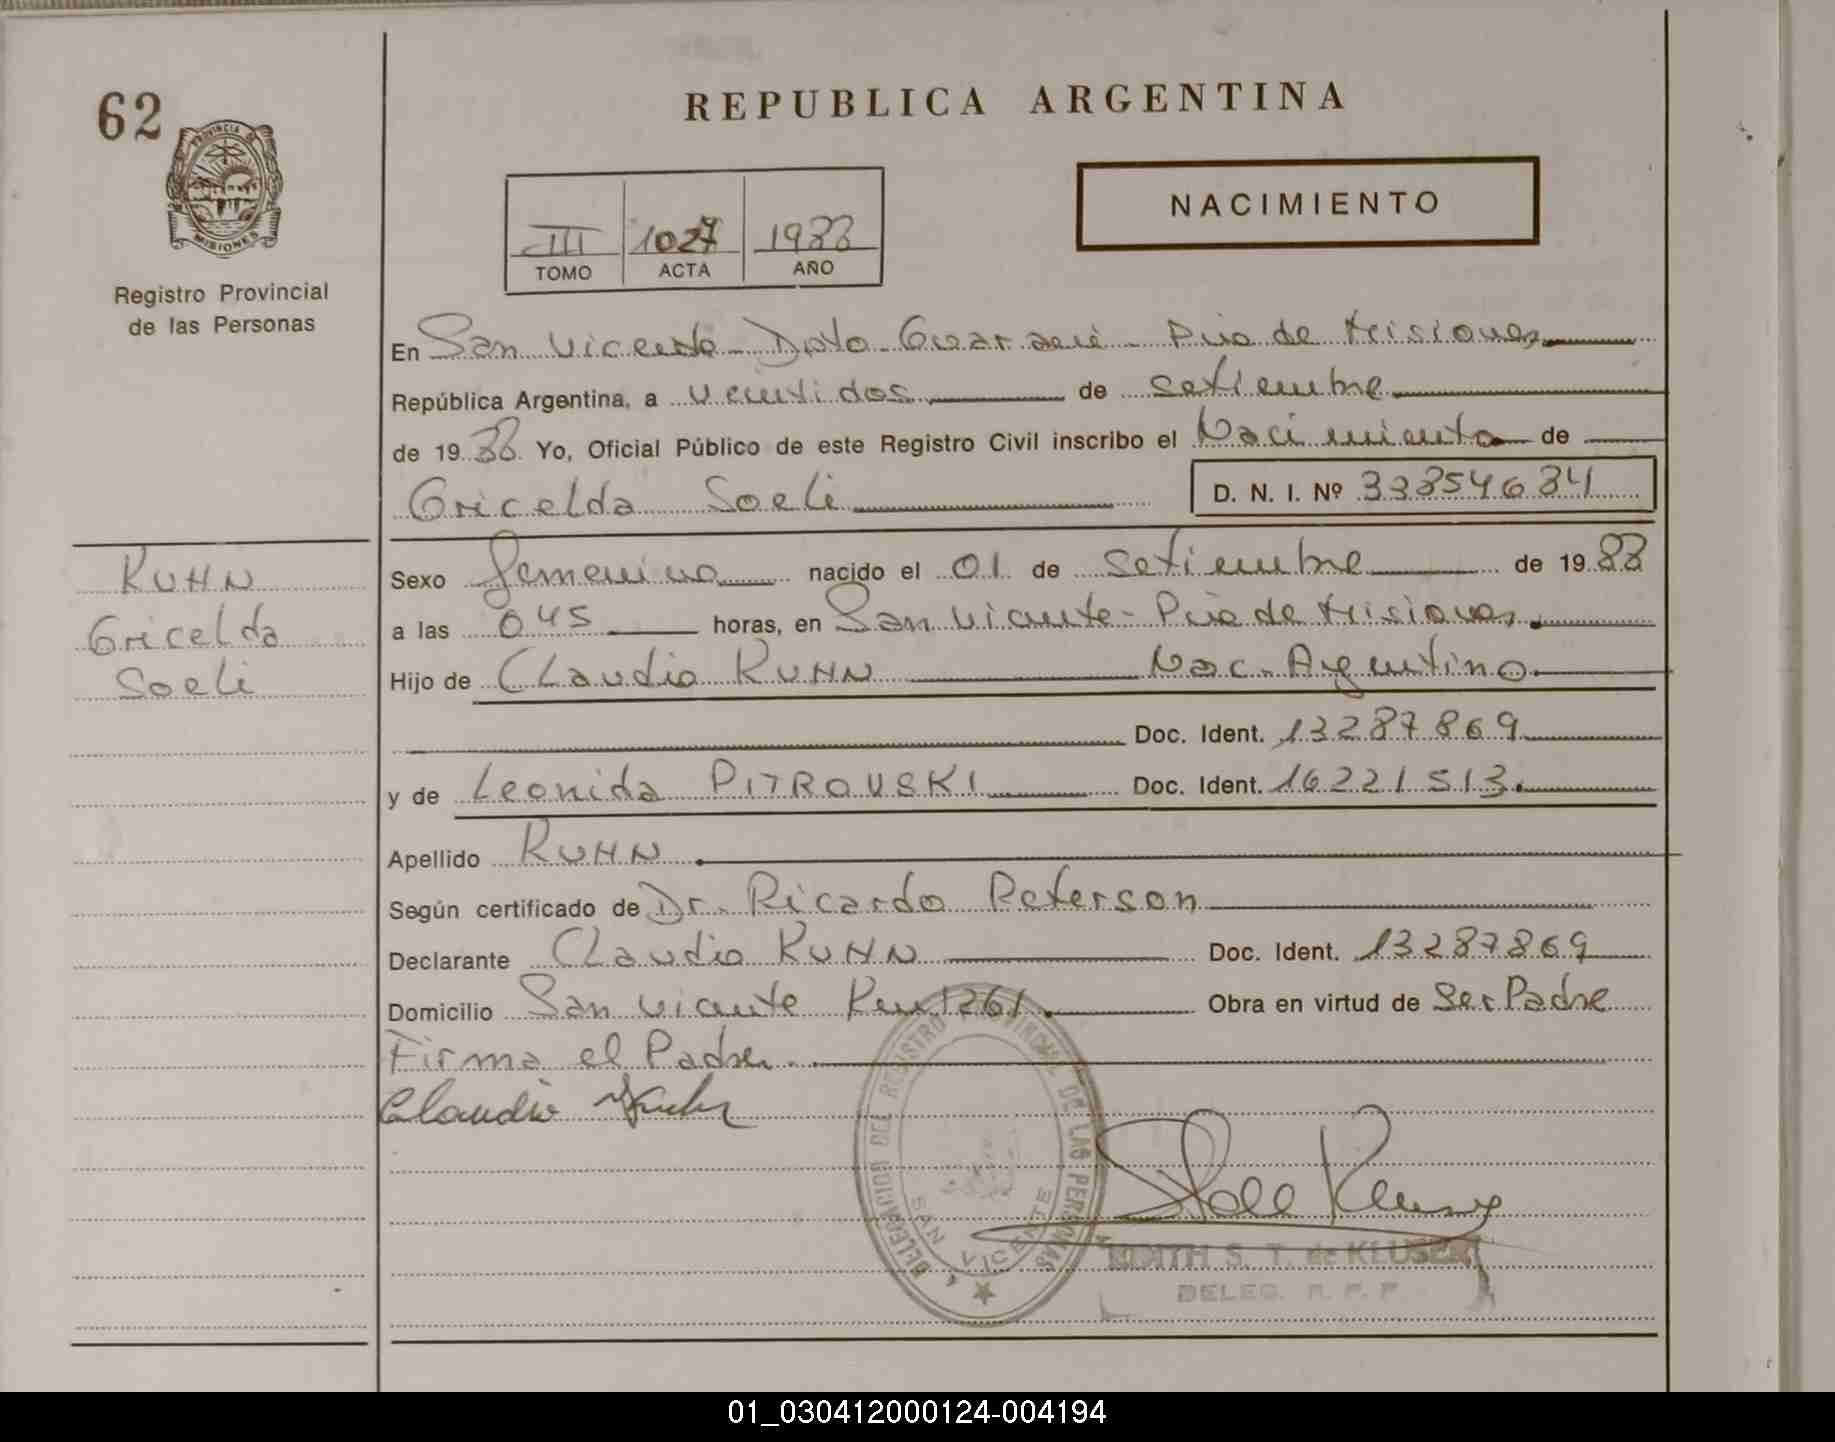 62
REPUBLICA ARGENTINA
PROVINCIA DE
MISIONES
Registro Provincial
de las Personas
III 1027 1988
TOMO ACTA AÑO
NACIMIENTO
En San Vicente - Dpto. Guaraní - Pcia de Misiones
República Argentina, a veintidos de setiembre
de 1988 Yo, Oficial Público de este Registro Civil inscribo el Nacimiento de
Gricelda Soeli D. N. I. Nº 33854684
KUHN
Gricelda
Soeli
Sexo femenino nacido el 01 de setiembre de 1988
a las 045 horas, en San Vicente - Pcia de Misiones.
Hijo de Claudio KUHN Nac. Argentino
Doc. Ident. 13287869
y de Leonida PITROVSKI Doc. Ident. 16221513.
Apellido KUHN
Según certificado de Dr. Ricardo Peterson
Declarante Claudio KUHN Doc. Ident. 13287869
Domicilio San Vicente Km 1261. Obra en virtud de Ser Padre
Firma el Padre.
Claudio Kuhn
DELEGACION DEL REGISTRO PROVINCIAL DE LAS PERSONAS
SAN VICENTE
EDITH S. T. de KLUSENER
DELEG. R. P. P
01_030412000124-004194